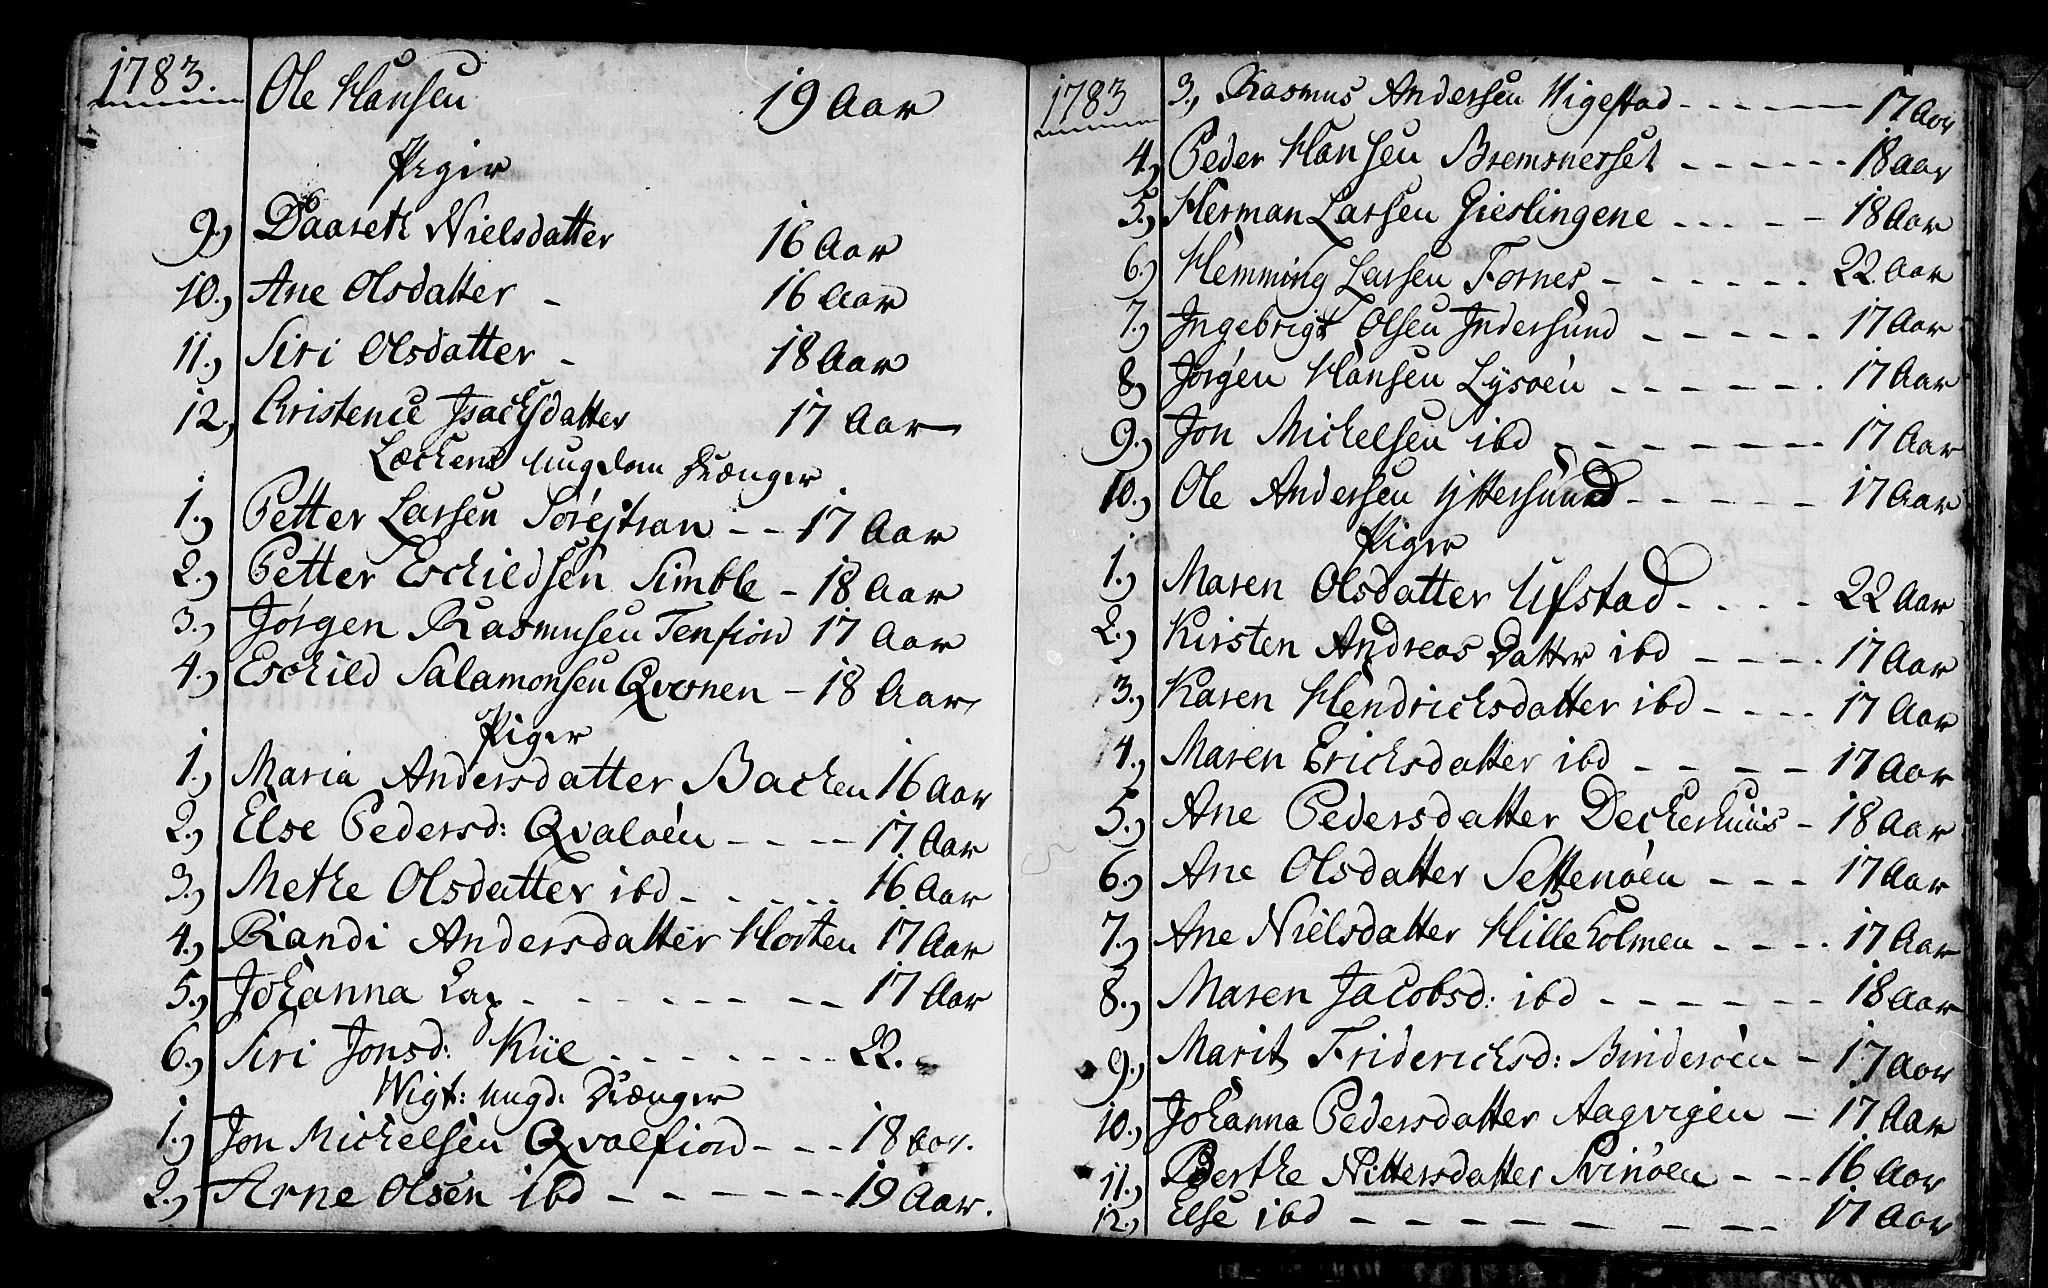 1783.
Ole Hansen 19 Aar
Piger
9.) Daareth Nielsdatter 16 Aar
10.) Ane Olsdatter - 16 Aar
11.) Siri Olsdatter - 18 Aar
12.) Christence Isachsdatter 17 Aar
Leckens Ungdom Drænger
1.) Petter Larsen Sørestran - - 17 Aar
2.) Petter Eschildsen Simble - 18 Aar
3.) Jørgen Rasmusen Tenfiord 17 Aar
4.) Eschild Salamonsen Qvernen - 18 Aar
Piger
1.) Maria Andersdatter Backen 16 Aar
2.) Else Pedersd: Qvaløen - - - - 17 Aar
3.) Methe Olsdatter ibd - - - - - 16 Aar
4.) Randi Andersdatter Horten 17 Aar
5.) Johanna Lap - - - - - - - 17 Aar
6.) Siri Jonsd: Kiie - - - - - - - 22.
Wigt: Ungd: Drænger
1.) Jon Michelsen Qvalfiord - - - 18 aar.
2.) Arne Olsen ibd - - - - - - - 19 Aar.
1783
3.) Rasmus Andersen Wigestad - - - - - 17 Aar
4.) Peder Hansen Bremsnesset - - - - - - 18 aar
5.) Herman Larsen Gieslingene - - - - - 18 Aar
6.) Hemming Larsen Fornes - - - - - - 22 Aar
7.) Ingebrigt Olsen Indersund - - - - - 17 Aar
8) Jørgen Hansen Lysøen - - - - - - 17 Aar
9.) Jon Michelsen ibd - - - - - - - 17 Aar
10.) Ole Andersen Yttersund - - - - - 17 Aar
Piger
1.) Maren Olsdatter Ufstad - - - - 22 Aar
2.) Kirsten Andreas Datter ibd - - - - 17 Aar
3.) Karen Hendrichsdatter ibd - - - - 17 Aar
4.) Maren Erichsdatter ibd - - - - 17 Aar
5.) Ane Pedersdatter Deckerhuus - 18 Aar
6.) Ane Olsdatter Settenøen - - - 17 Aar
7.) Ane Nielsdatter Hilleholmen - - - - 17 Aar
8.) Maren Jacobsd: ibd - - - - - - 18 Aar
9.) Marit Friderichsd: Binderøen - 17 Aar
10.) Johanna Pedersdatter Aagvigen - 17 Aar
11.) Berthe Nittersdatter Svinøen - - - 16 Aar
12.) Else ibd - - - - - - - - 17 Aar